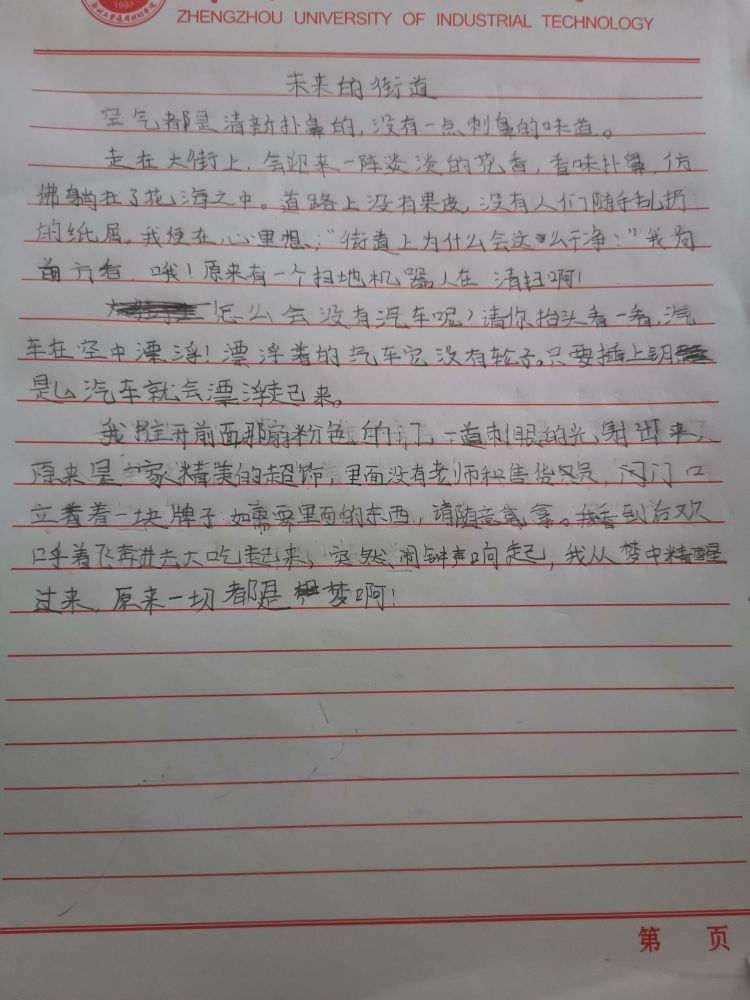 1997
ZHENGZHOU UNIVERSITY OF INDUSTRIAL TECHNOLOGY
未来的街道
空气都是清新扑鼻的,没有一点刺鼻的味道。
走在大街上,会迎来一阵淡淡的花香,香味扑鼻,仿
佛躺在了花海之中。道路上没有果皮,没有人们随手乱扔
的纸屑。我便在心里想:“街道上为什么会这么干净:”我向
前方看,哦!原来有一个扫地机器人在清扫啊!
怎么会没有汽车呢?请你抬头看一看,汽
车在空中漂浮!漂浮着的汽车它没有轮子。只要插上钥
是匕汽车就会漂浮起来。
我推开前面那扇粉色的门,一道刺眼的光射出来,
原来是一家精美的超饰,里面没有老师和售货员,闪门口
立着着一块牌子如需要里面的东西,请随意拿。我看到后欢
呼着飞奔进去大吃起来,突然闹钟声响起,我从梦中精醒
过来,原来一切都是梦啊!
第 页